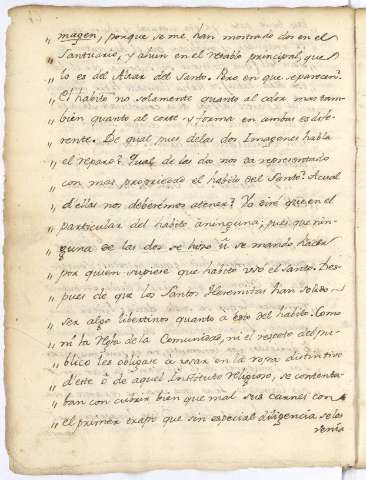 „ magen, porque se me han mostrado dos en el
„ Santuario, y aun en el retablo principal, que
„ lo es del Altar del Santo. Pero en que se parecen?
„ El habito no solamente quanto al color mas tam-
„ bien quanto al corte y forma en ambas es dife-
„ rente. De qual pues de las dos Imagenes habla
„ el reparo? Qual de las dos nos ha representado
„ con mas propriedad el habito del Santo? A cual
„ d'ellas nos deberemos atener? Yo diré que en el
„ particular del habito a ninguna; pues que nin-
„ guna de las dos se hizo ni se mandó hacer
„ por quien supiese que habito usó el Santo. Des-
„ pues de que los Santos Heremitas han solido
„ ser algo libertinos quanto a esto del habito. Como
„ ni la Regla de la Comunidad, ni el respeto del pu-
„ blico les obligase a usar en la ropa distintivo
„ d'este ò de aquel Instituto religioso, se contenta-
„ ban con cubrir bien que mal sus carnes con
„ el primer trapo que sin especial diligencia se les
venía